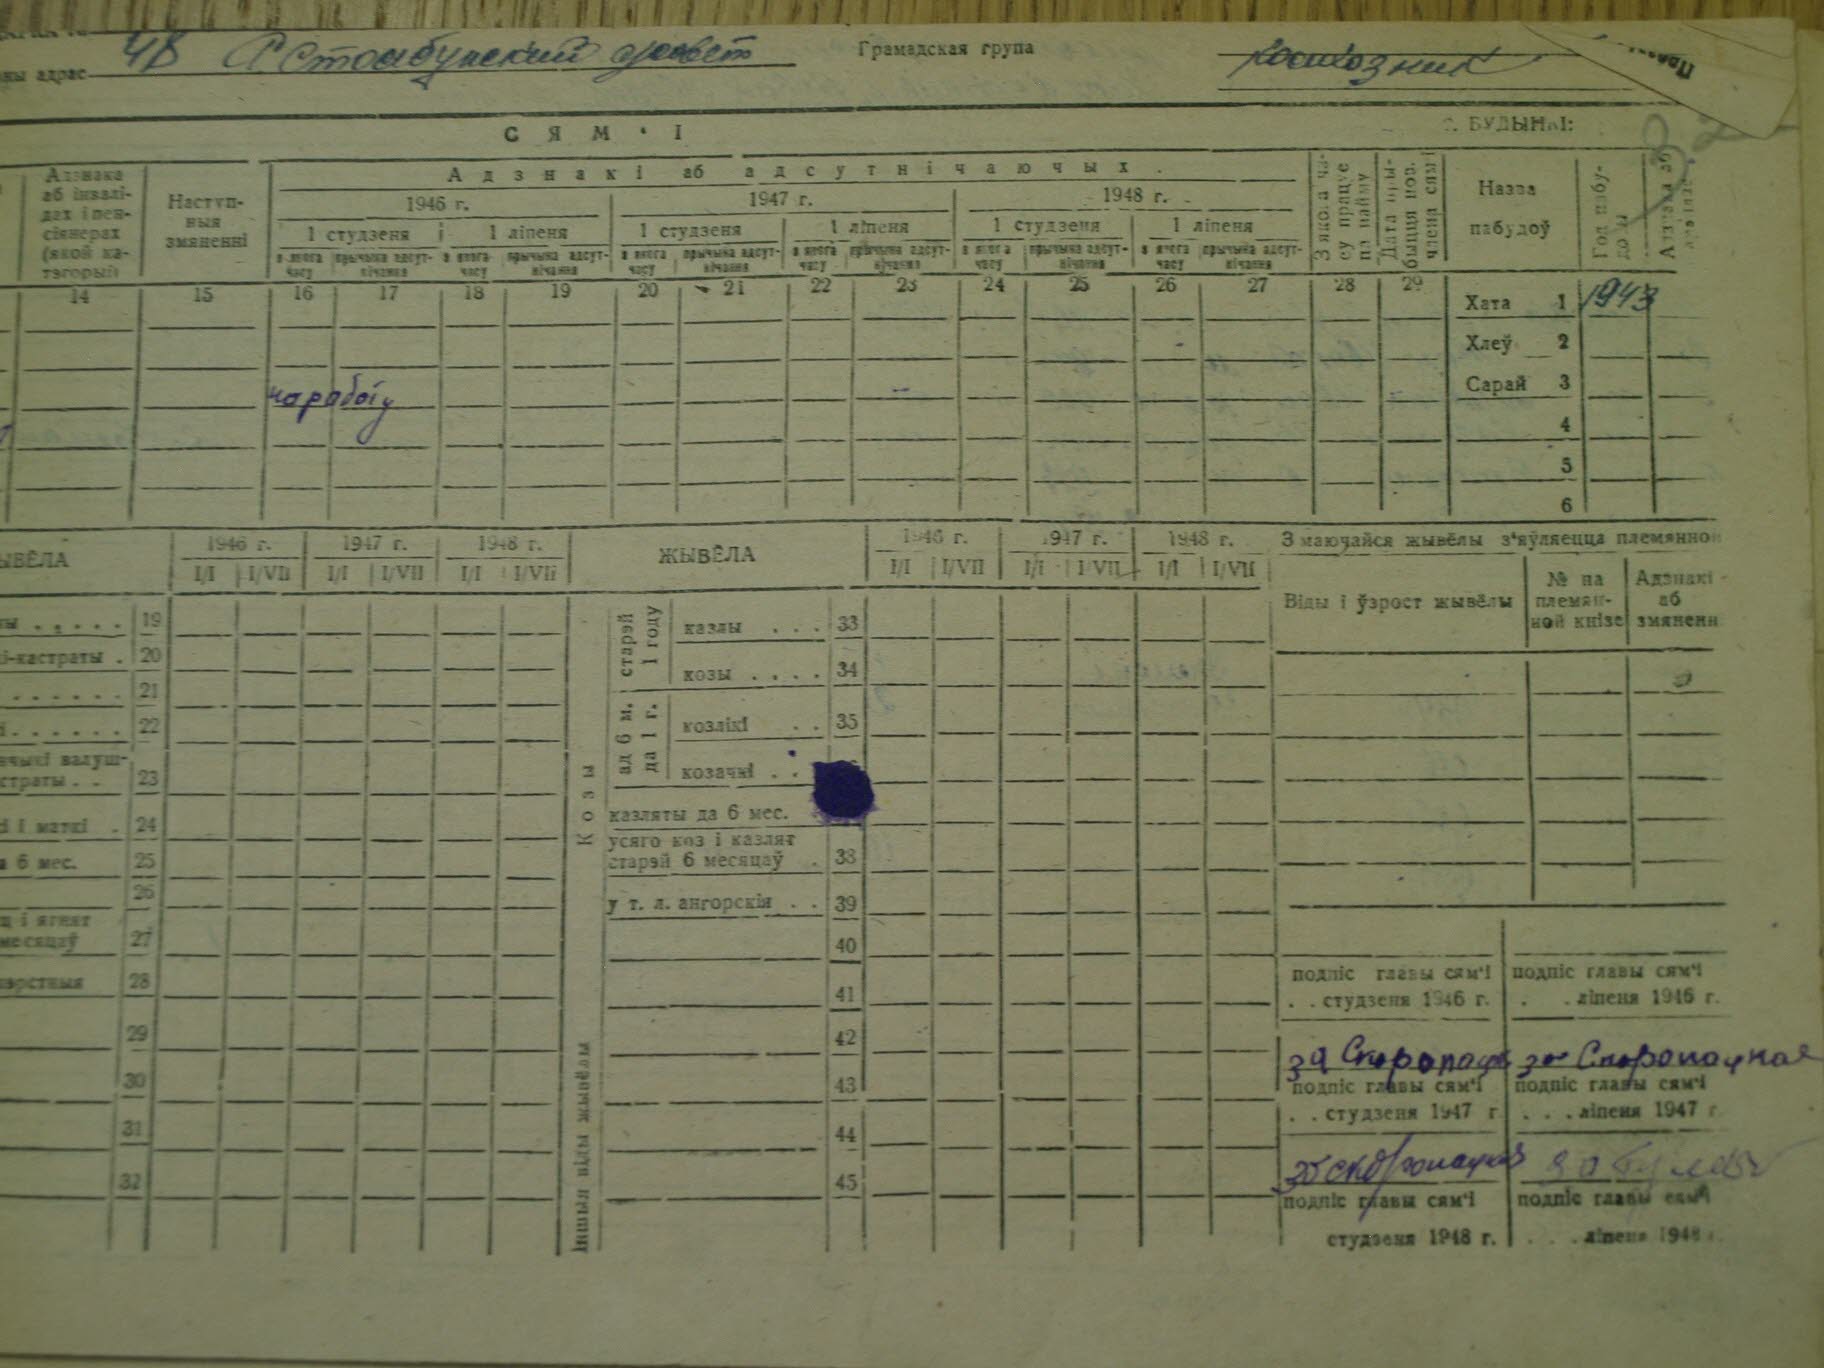 48 С Столбунский совет Грамадская група колхозник
ны адрас
СЯМ'І
БУДЫНКІ:
Адзнака аб інвалідах і пенсіянерах (якой катэгорыі
Наступныя змяненні
Адзнакі аб адсутнічаючых
1946 г. 1947 г. 1948 г.
1 студзеня 1 ліпеня 1 студзеня 1 ліпеня 1 студзеня 1 ліпеня
з якога часу прычына адсутнічання з якога часу прычына адсутнічання з якога часу прычына адсутнічання з якога часу прычына адсутнічання з якога часу прычына адсутнічання з якога часу прычына адсутнічання
З якога часу працуе па найму
Дата прыбыцця нов. члена сямі
Назва пабудоў
Год пабудовы
14 15 16 17 18 19 20 21 22 23 24 25 26 27 28 29
Хата 1 1943
Хлеў 2
Сарай 3
на работу
4
5
6
ЫВЁЛА 1946 г. 1947 г. 1948 г. ЖЫВЁЛА 1946 г. 1947 г. 1948 г. З маючайся жывёлы з'яўляецца племянной
І/І І/VІІ І/І І/VІІ І/І І/VІІ І/І І/VІІ І/І І/VІІ І/І І/VІІ
Віды і ўзрост жывёлы
№ на племяннной кнізе
Адзнакі аб змяненн
ты . . . . . 19
і-кастраты . 20
. . . . . . 21
і . . . . . . 22
валуш-
страты . . 23
і маткі . 24
а 6 мес. 25
26
ц і ягнят
месяцаў 27
28
29
30
31
32
Козы
старэй 1 году
казлы . . . 33
козы . . . . 34
ад 6 м. да 1 г.
козлікі . . 35
козачкі . .
казляты да 6 мес.
усяго коз і казлят
старэй 6 месяцаў . 38
у т. л. ангорскія . . 39
Іншыя віды жывёлы
40
41
42
43
44
45
подпіс главы сям'і подпіс главы сям'і
. . студзеня 1946 г. . . ліпеня 1946 г.
за за Скоропацкая
подпіс главы сям'і подпіс главы сям'і
. . студзеня 1947 г . . . ліпеня 1947 г
подпіс главы сям'і подпіс главы сям'і
студзеня 1948 г. . . . ліпеня 1948 г.